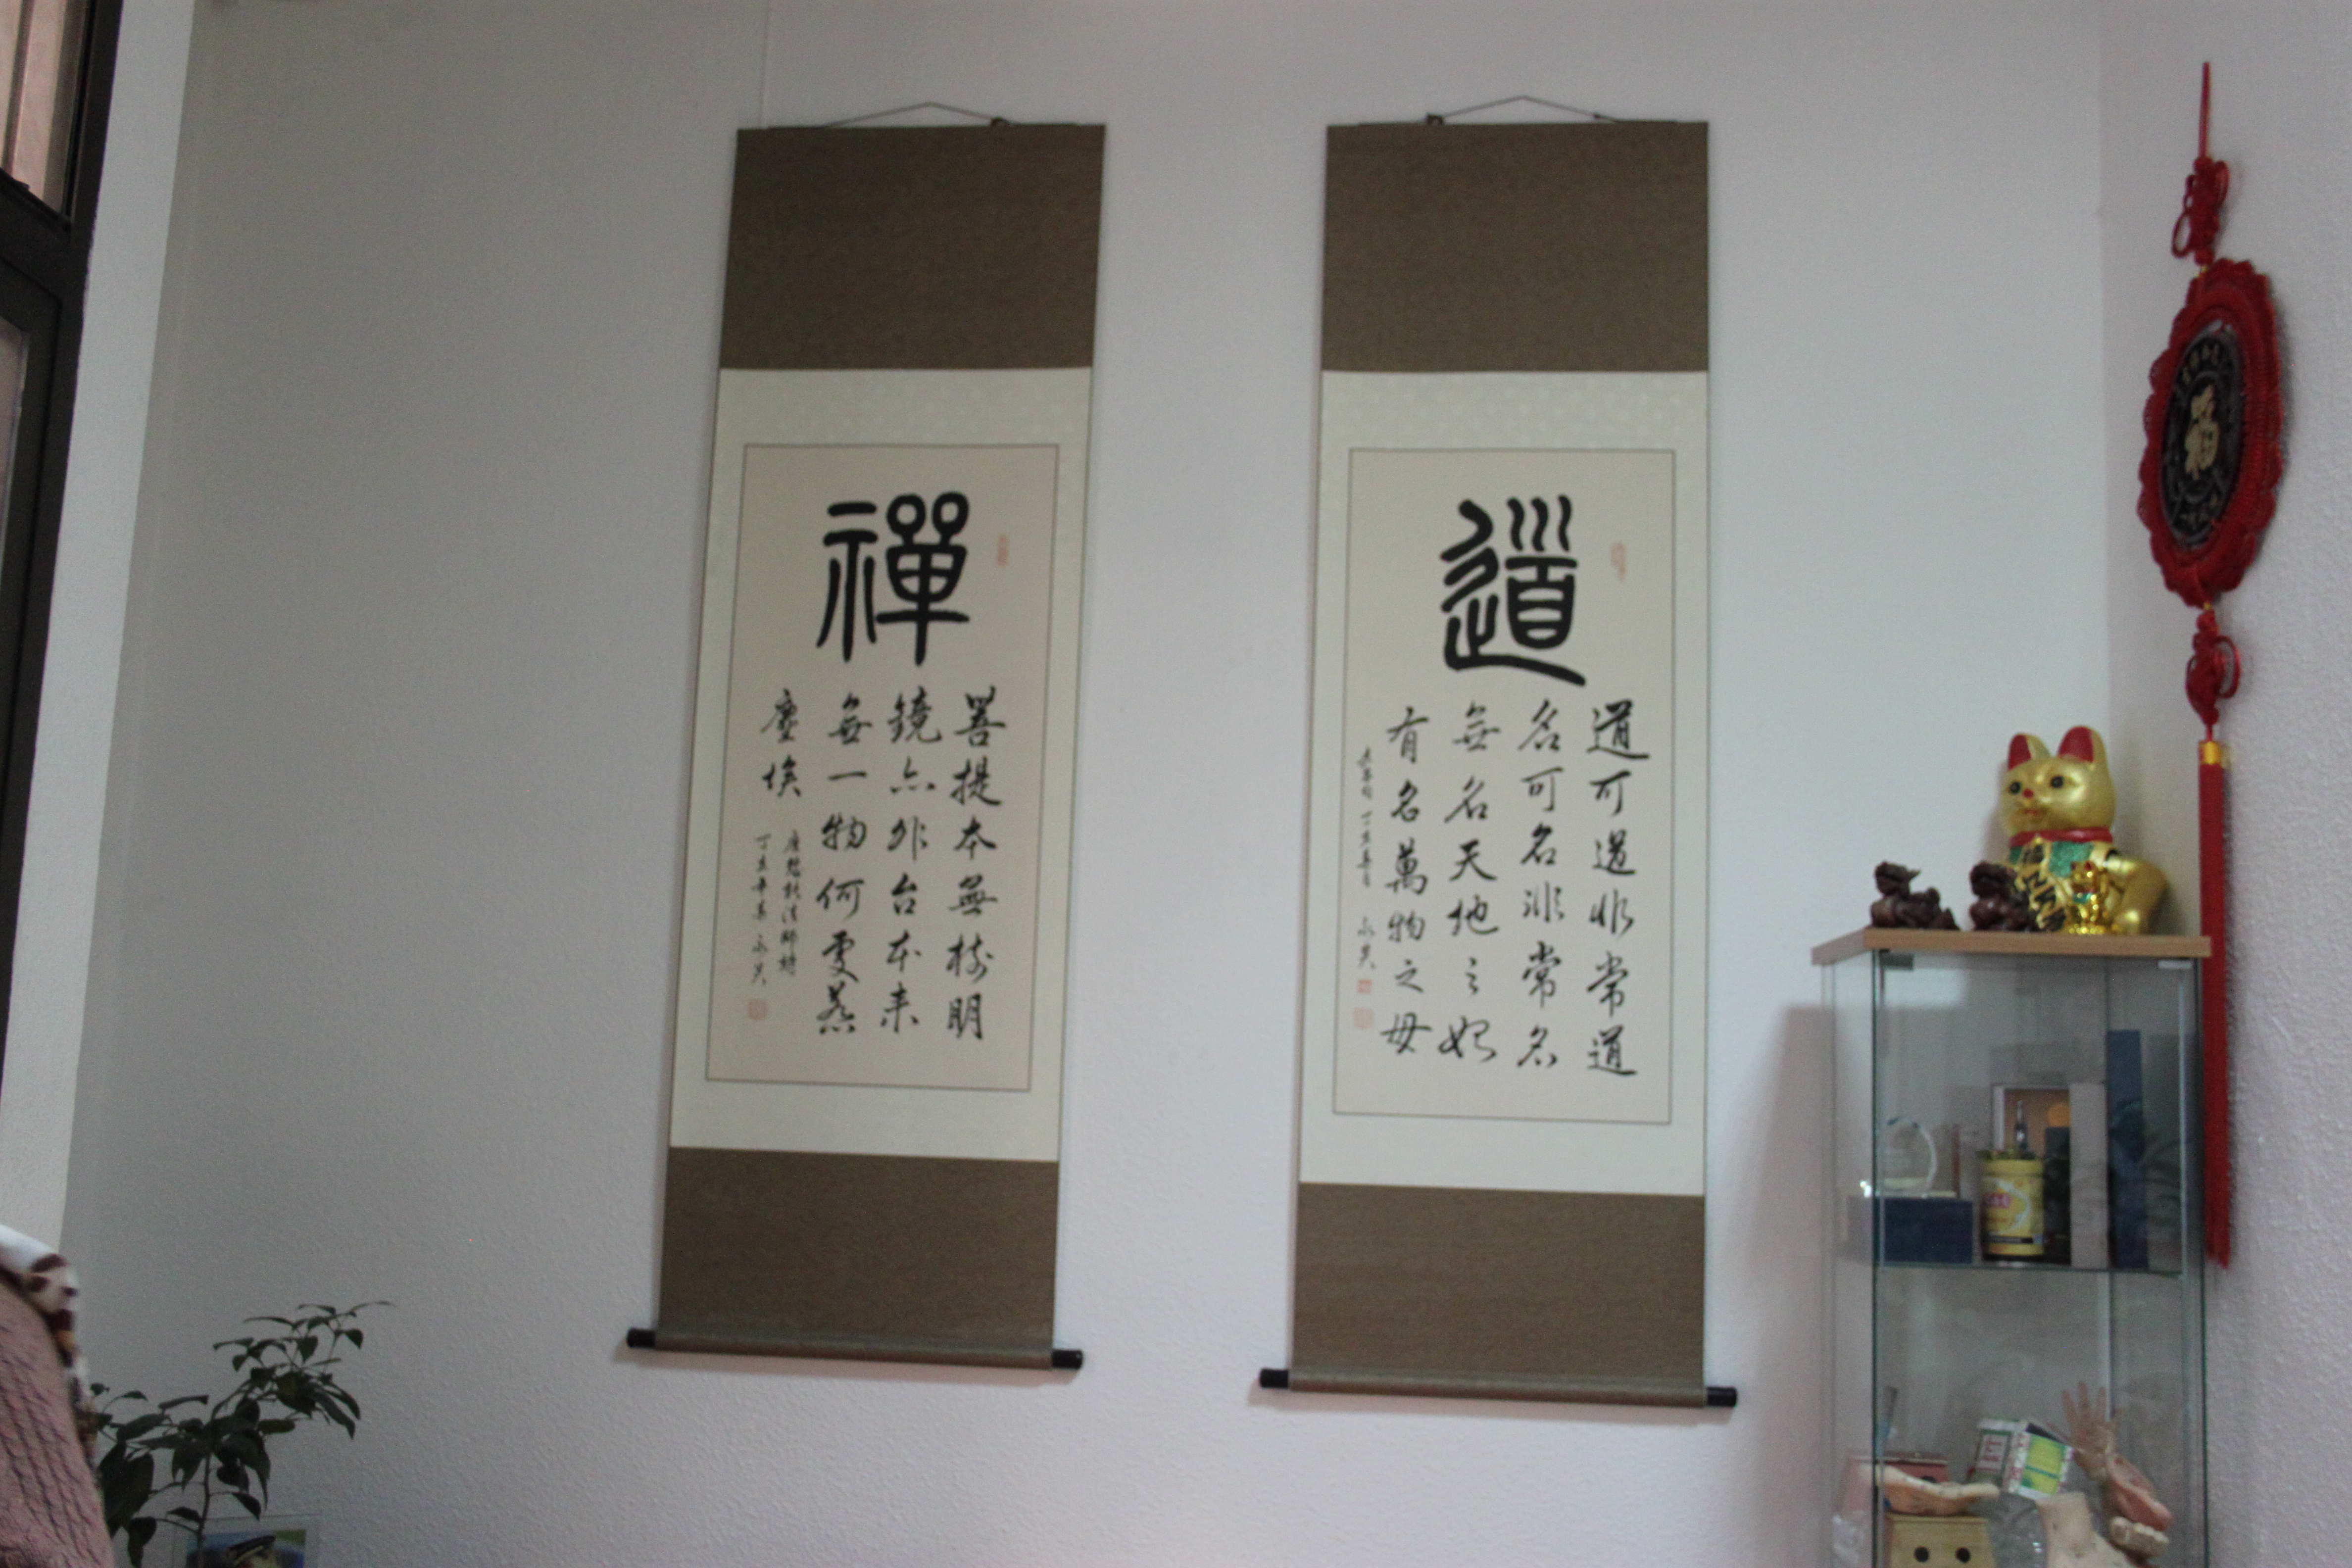 道
道可道非常道
名可名非常名
無名天地之始
有名萬物之母
老子句 丁亥夏月
禪
菩提本無樹明
鏡亦非台本来
無一物何處惹
塵埃
唐慧能法師詩
丁亥年夏
福